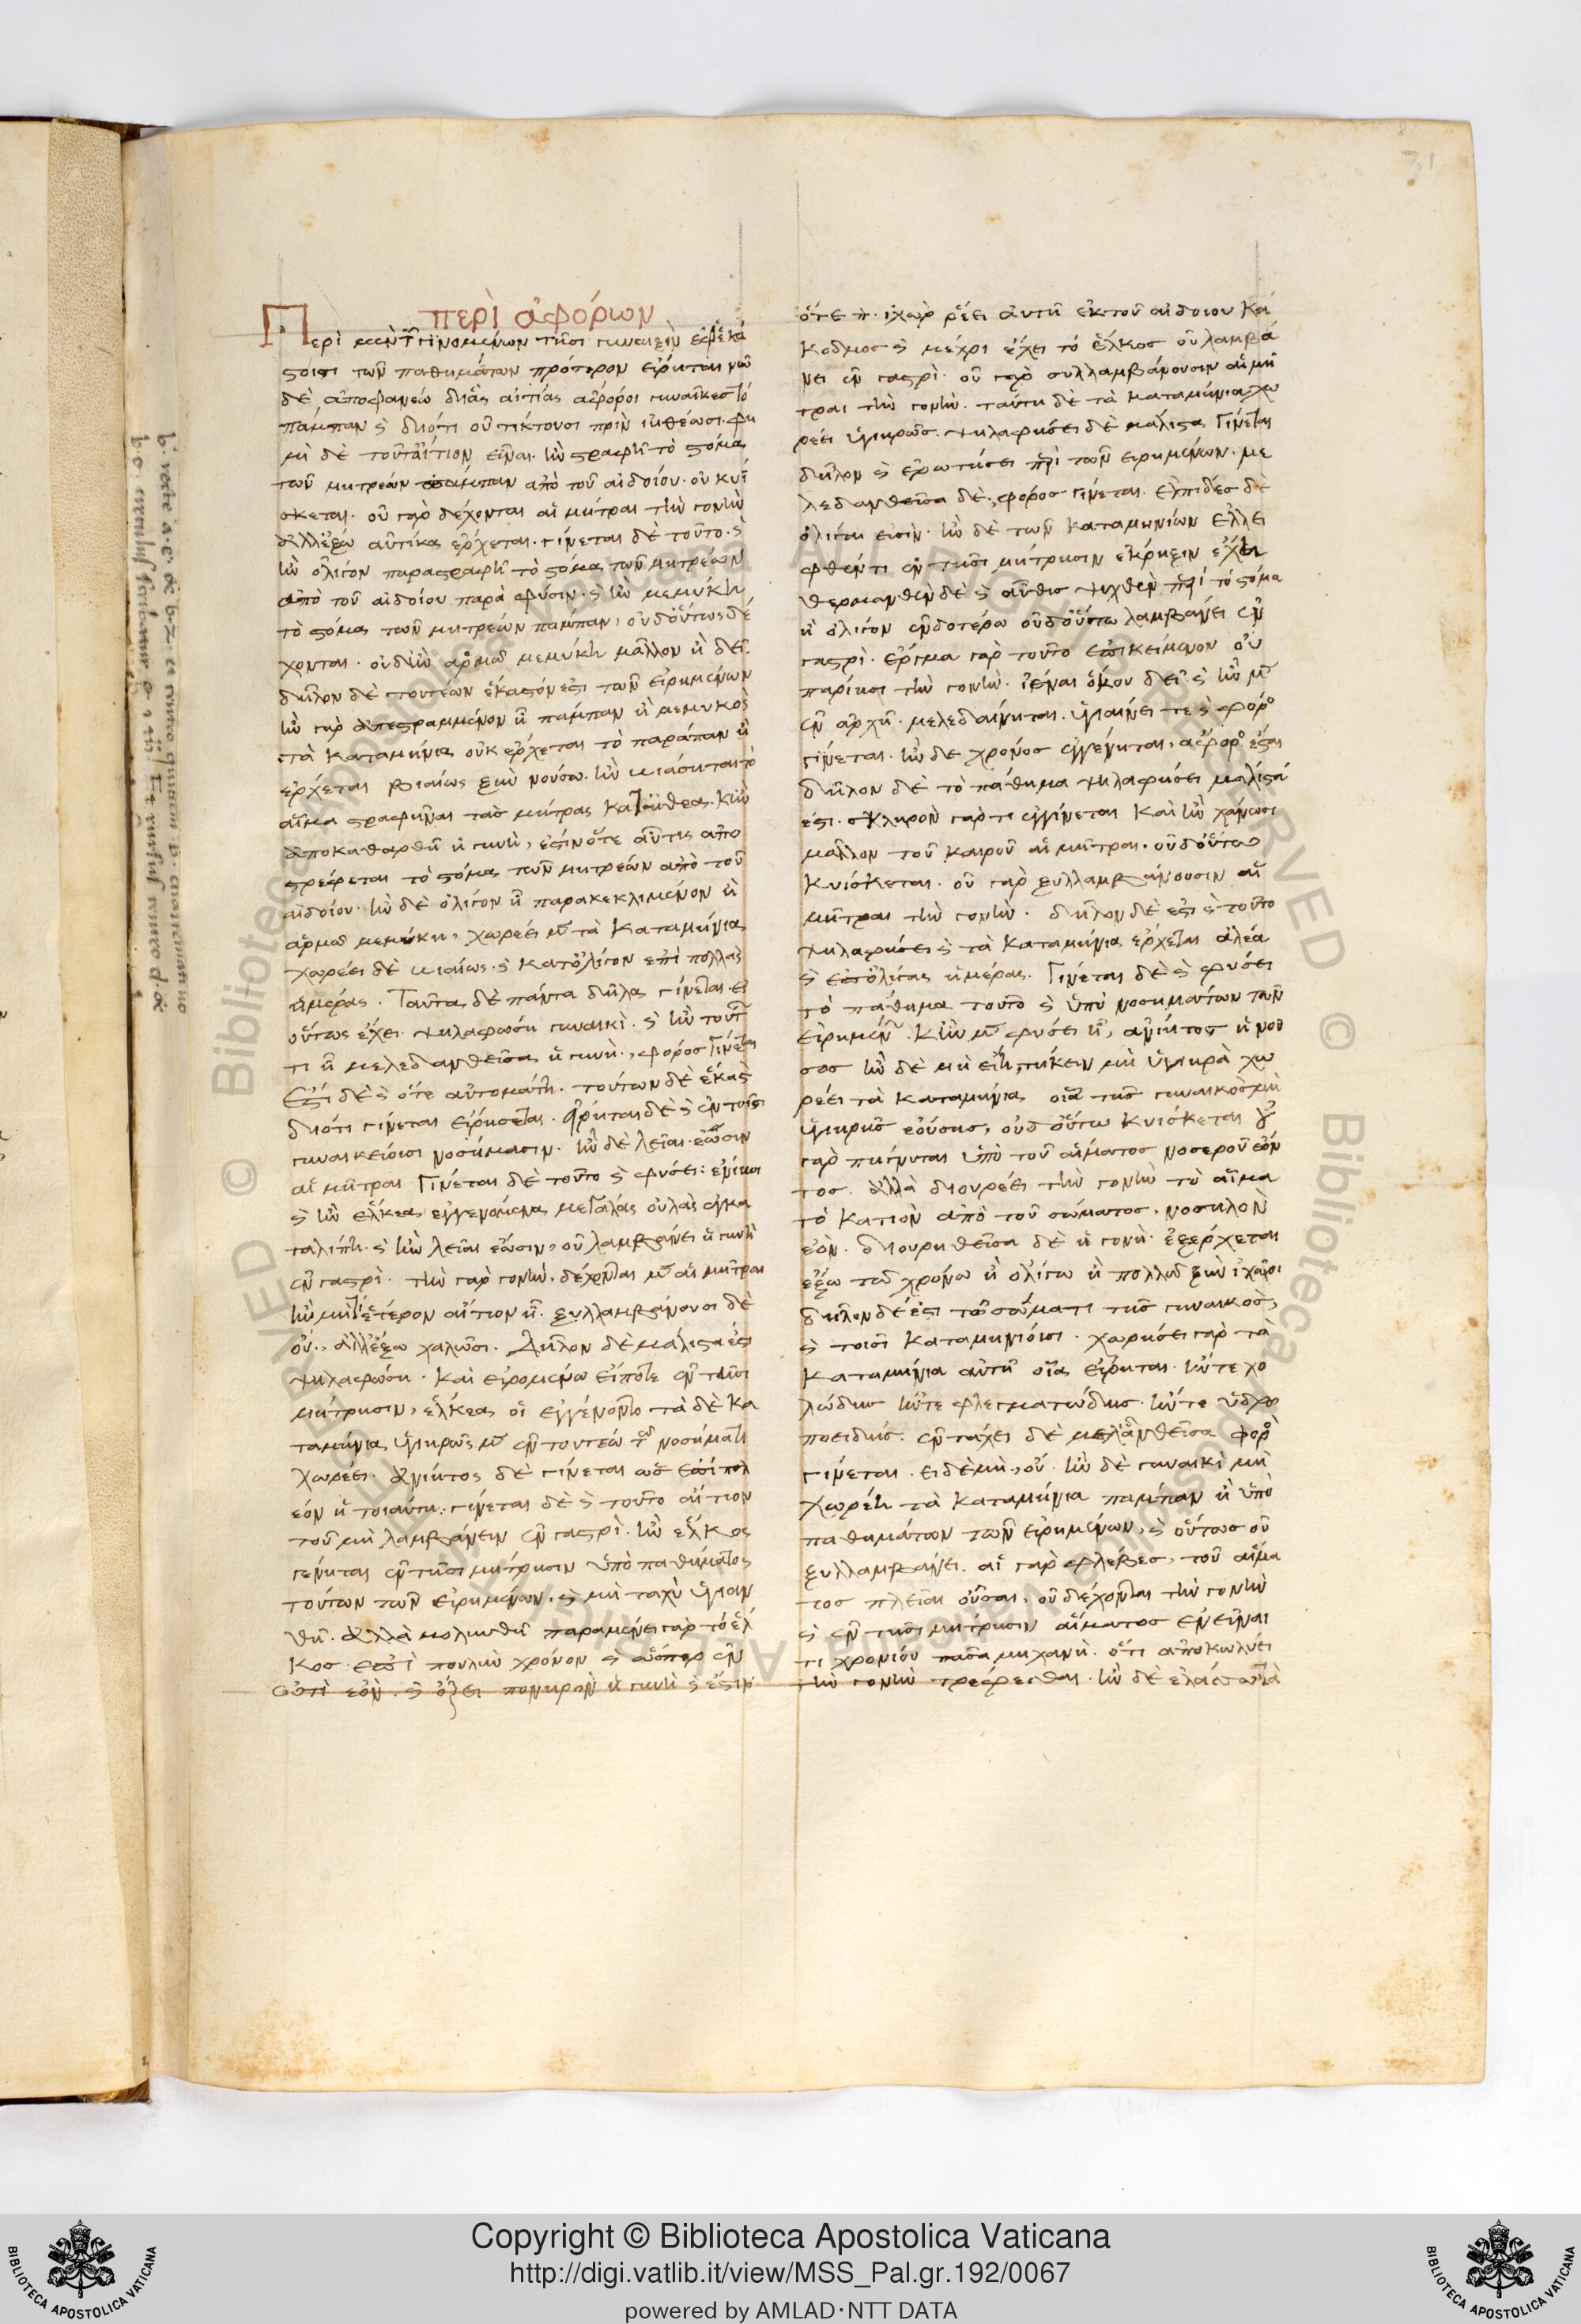 περὶ ἀφόρων
Περὶ μὲν τῶν γινομένων τῆσι γυναιξὶν ἐφ' ἑκά
στοισι τῶν παθημάτων πρότερον εἴρηται νῦν
δὲ ἀποφανέω δι' ἃς αἰτίας ἄφοροι γυναῖκες τὸ
πάμπαν καὶ διότι οὐ τίκτουσι πρὶν ἰηθέωσι. φη
μὶ δὲ τοῦτ' αἴτιον εἶναι. ἢν στραφῇ τὸ στόμα
τῶν μητρέων πάμπαν ἀπὸ τοῦ αἰδοίου. οὐ κυΐ
σκεται. οὐ γὰρ δέχονται αἱ μῆτραι τὴν γονὴν
ἀλλ' ἔξω αὐτίκα ἔρχεται. γίνεται δὲ τοῦτο. καὶ
ἢν ὀλίγον παραστραφῇ τὸ στόμα τῶν μητρέων
ἀπὸ τοῦ αἰδοίου παρὰ φύσιν. καὶ ἢν μεμύκῃ
τὸ στόμα τῶν μητρέων πάμπαν, οὐδ' οὕτως δέ
χονται. οὐδ' ἢν ἁρμῷ μεμύκῃ μᾶλλον ἢ δεῖ.
δῆλον δὲ τουτέων ἕκαστόν ἐστι τῶν εἰρημένων
ἢν γὰρ ἀπεστραμμένον ᾖ πάμπαν ἢ μεμυκὸς
τὰ καταμήνια οὐκ ἔρχεται τὸ παράπαν ἢ
ἔρχεται βιαίως ξὺν νούσῳ. ἢν βιάσηται τὸ
αἷμα στραφῆναι τὰς μήτρας κατ' ἰθέας. κἢν
ἀποκαθαρθῇ ἡ γυνὴ, ἔστιν ὅτε αὖτις ἀπο
στρέφεται τὸ στόμα τῶν μητρέων ἀπὸ τοῦ
αἰδοίου. ἢν δὲ ὀλίγον ᾖ παρακεκλιμένον ἢ
ἁρμῷ μεμύκῃ, χωρέει μὲν τὰ καταμήνια
χωρέει δὲ βιαίως. καὶ κατ' ὀλίγον ἐπὶ πολλὰς
ἡμέρας. Ταῦτα δὲ πάντα δῆλα γίνεται. εἰ
οὕτως ἔχει. ψηλαφώσῃ γυναικὶ. καὶ ἢν τούτων
τι ᾖ μελεδανθεῖσα ἡ γυνὴ, φορὸς γίνεται
Ἔστι δὲ καὶ ὅτε αὐτομάτη. τούτων δὲ ἕκαστα
διότι γίνεται εἰρήσεται. εἴρηται δὲ καὶ ἐν τοῖσι
γυναικείοισι νοσήμασιν. ἢν δὲ λεῖαι ἔωσιν
αἱ μῆτραι Γίνεται δὲ τοῦτο καὶ φύσει: ἐνίῃσι
καὶ ἢν ἕλκεα ἐγγενόμενα μεγάλας οὐλὰς ἐγκα
ταλίπῃ. καὶ ἢν λεῖαι ἔωσιν, οὐ λαμβάνει ἡ γυνὴ
ἐν γαστρὶ. τὴν γὰρ γονὴν. δέχονται μὲν αἱ μῆτραι
ἢν μή τι ἕτερον αἴτιον ᾖ. ξυλλαμβάνουσι δὲ
οὔ., ἀλλ' ἔξω χαλῶσι. Δῆλον δὲ μάλιστά ἐστι
ψηλαφώσῃ. καὶ εἰρομένῳ εἴποτε ἐν τῇσι
μήτρῃσιν, ἕλκεα οἱ ἐγγένοντο τὰ δὲ κα
ταμήνια ὑγιηρῶς μὲν ἐν τουτέῳ τῷ νοσήματι
χωρέει. ἀνίητος δὲ γίνεται ὡς ἐπὶ πολ
έον ἡ τοιαύτη. γίνεται δὲ καὶ τοῦτο αἴτιον
τοῦ μὴ λαμβάνειν ἐν γαστρὶ. ἢν ἕλκος
γένηται ἐν τῇσι μήτρῃσιν ὑπὸ παθήματος
τούτων τῶν εἰρημένων. καὶ μὴ ταχὺ ὑγιαν
θῇ. ἀλλὰ μολυνθῇ παραμένει γὰρ τὸ ἕλ
κος ἐπὶ πουλὺν χρόνον καὶ ὥσπερ ἐν
ὠτὶ ἐὸν. καὶ ὄζει πονηρὸν ἡ γυνὴ καὶ ἔστιν
ὅτε π. ἰχὼρ ῥέει αὐτῇ ἐκ τοῦ αἰδοίου κά
κοδμος καὶ μέχρι ἔχει τὸ ἕλκος οὐ λαμβά
νει ἐν γαστρὶ. οὐ γὰρ συλλαμβάνουσιν αἱ μῆ
τραι τὴν γονὴν. ταύτῃ δὲ τὰ καταμήνια χω
ρέει ὑγιηρῶς. ψηλαφήσει δὲ μάλιστα Γίνεται
δῆλον καὶ ἐρωτήσει περὶ τῶν εἰρημένων. με
λεδανθεῖσα δὲ, φορὸς γίνεται. ἐλπίδες δὲ
ὀλίγαι εἰσὶν. ἢν δὲ τῶν καταμηνίων ἐλλει
φθέντι ἐν τῇσι μήτρῃσιν ἔκρηξιν ἔχῃ
θερμανθὲν δὲ καὶ αὖθις ψυχθὲν περὶ τὸ στόμα
ἢ ὀλίγον ἐνδοτέρω οὐδ' οὕτω λαμβάνει ἐν
γαστρὶ. ἔρεγμα γὰρ τοῦτο ἐπικείμενον οὐ
παρίησι τὴν γονὴν. ἰέναι ὅκου δεῖ καὶ ἢν μὲν
ἐν ἀρχῇ. μελεδαίνηται. ὑγιαίνει τε καὶ φορὸς
γίνεται. ἢν δὲ χρόνος ἐγγένηται, ἄφορος ἔσται
δῆλον δὲ τὸ πάθημα ψηλαφήσει μάλιστά
ἐστι. σκληρὸν γάρ τι ἐγγίνεται Καὶ ἢν χάνωσι
μᾶλλον τοῦ καιροῦ αἱ μῆτραι. οὐδ' οὕτω
κυΐσκεται. οὐ γὰρ ξυλλαμβάνουσιν αἱ
μῆτραι τὴν γονὴν. δῆλον δὲ ἐστι καὶ τοῦτο
ψηλαφήσει καὶ τὰ καταμήνια ἔρχεται ἁλέα
καὶ ἐπ' ὀλίγας ἡμέρας. Γίνεται δὲ καὶ φύσει
τὸ πάθημα τοῦτο καὶ ὑπὸ νοσημάτων τῶν
εἰρημένων. κἢν μὲν φύσει ᾖ, ἀνίητος ἡ νοῦ
σος ἢν δὲ μὴ εἴη, τήκειν μὴ ὑγιηρὰ χω
ρέει τὰ καταμήνια οἷα τῆς γυναικὸς μὴ
ὑγιηρῆς ἐούσης, οὐδ' οὕτω κυΐσκεται οὐ
γὰρ πήγνυται ὑπὸ τοῦ αἵματος νοσεροῦ ἐόν
τος. ἀλλὰ διουρέει τὴν γονὴν τὸ αἷμα
τὸ κατιὸν ἀπὸ τοῦ σώματος. νοσηλὸν
ἐὸν. διουρηθεῖσα δὲ ἡ γονὴ. ἐξέρχεται
ἔξω τῷ χρόνῳ ἢ ὀλίγῳ ἢ πολλῷ ξὺν ἰχῶρι
δῆλον δέ ἐστι τῷ σώματι τῆς γυναικὸς,
καὶ τοῖσι καταμηνίοισι. χωρήσει γὰρ τὰ
καταμήνια αὐτῇ οἷα εἴρηται. ἤν τε χο
λώδης ἤν τε φλεγματώδης. ἤν τε ὑδρω
ποειδής. ἐν τάχει δὲ μελεδανθεῖσα φορὸς
γίνεται. εἰ δὲ μὴ, οὔ. ἢν δὲ γυναικὶ μὴ
χωρέῃ τὰ καταμήνια πάμπαν ἢ ὑπὸ
παθημάτων τῶν εἰρημένων, καὶ οὕτως οὐ
ξυλλαμβάνει. αἱ γὰρ φλέβες, τοῦ αἵμα
τος πλεῖαι οὖσαι, οὐ δέχονται τὴν γονὴν
καὶ ἐν τῇσι μήτρῃσιν αἵματος ἐνεῖναι
τι χρονίου πᾶσα μηχανὴ. ὅτι ἀποκωλύει
τὴν γονὴν τρέφεσθαι. ἢν δὲ ἐλάσσω τὰ
Copyright © Biblioteca Apostolica Vaticana
http://digi.vatlib.it/view/MSS_Pal.gr.192/0067
powered by AMLAD·NTT DATA
BIBLIOTECA APOSTOLICA VATICANA
BIBLIOTECA APOSTOLICA VATICANA